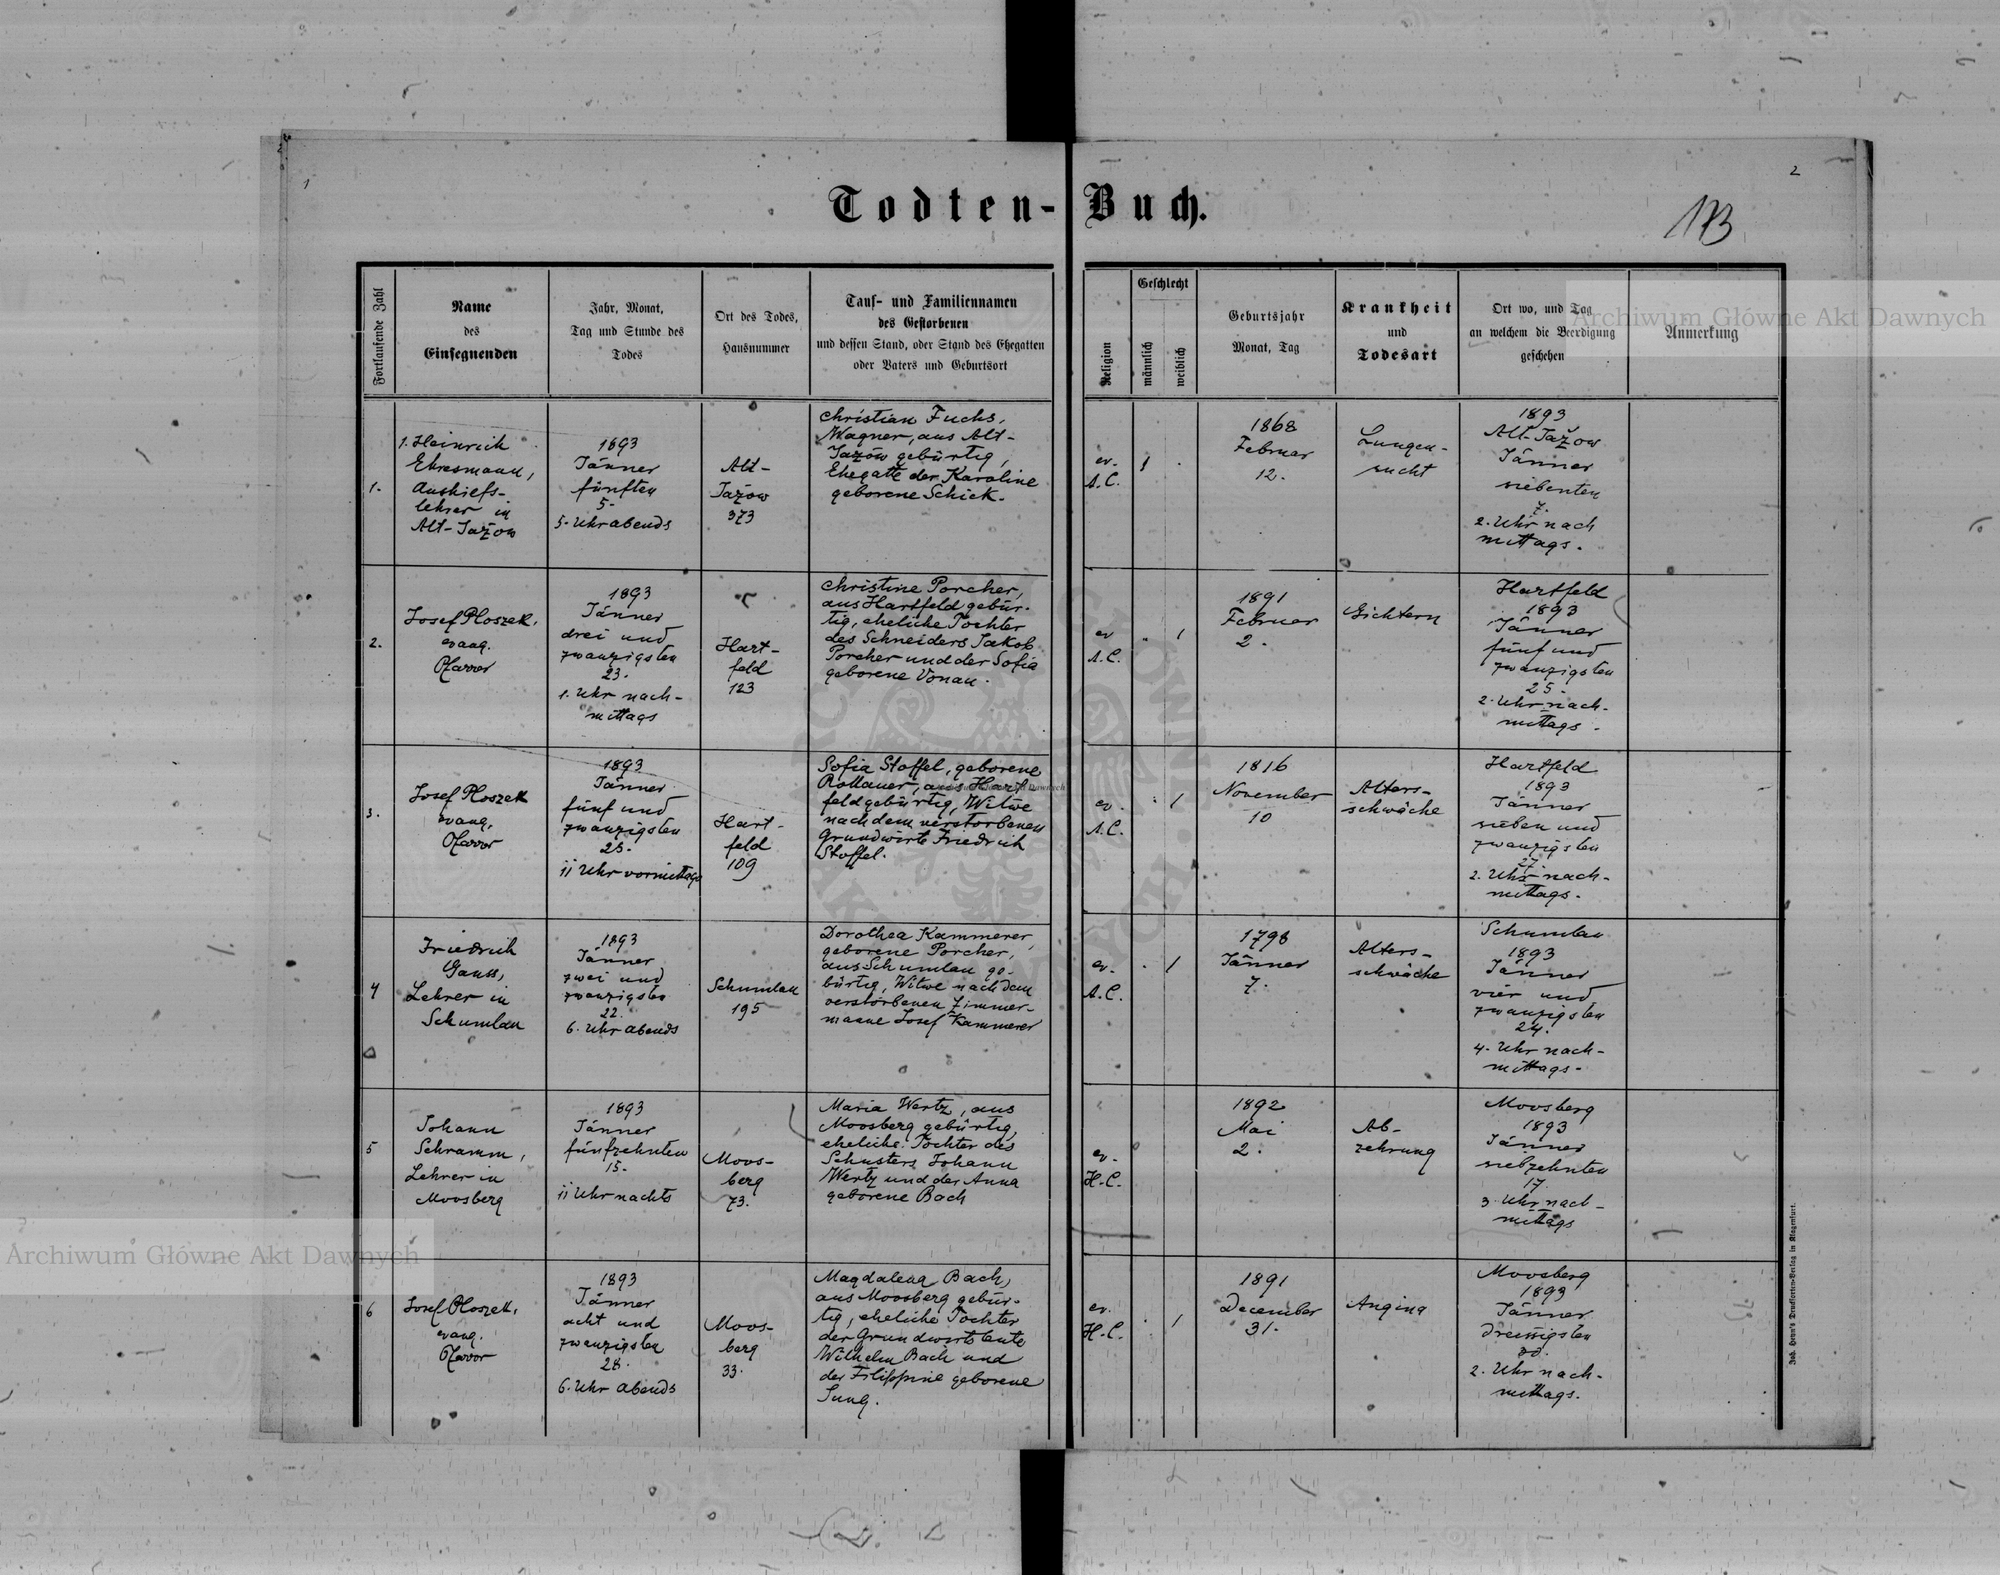 1
2
Todten-Buch.
173
Fortlaufende Zahl
Name
des
Einsegnenden
Jahr, Monat,
Tag und Stunde des
Todes
Ort des Todes,
Hausnummer
Tauf- und Familiennamen
des Gestorbenen
und dessen Stand, oder Stand des Ehegatten
oder Vaters und Geburtsort
Religion
Geschlecht
männlich
weiblich
Geburtsjahr
Monat, Tag
Krankheit
und
Todesart
Ort wo, und Tag
an welchem die Beerdigung
geschehen
Anmerkung
1.
1. Heinrich
Ehresmann,
Aushiefs-
lehrer in
Alt-Jazow
1893
Jänner
fünften
5.
5. Uhr abends
Alt-
Jazow
373
Christian Fuchs,
Wagner, aus Alt-
Jazow gebürtig,
Ehegatte der Karoline
geborene Schick.
ev.
A.C.
1
1868
Februar
12.
Lungen-
sucht
1893
Alt-Jazow
Jänner
siebenten
7.
2. Uhr nach
mittags.
2.
Josef Ploszek,
evang.
Pfarrer
1893
Jänner
drei und
zwanzigsten
23.
1. Uhr nach-
mittags
Hart-
feld
123
Christine Porcher,
aus Hartfeld gebür-
tig, eheliche Tochter
des Schneiders Jakob
Porcher und der Sofia
geborene Vonau.
ev
A.C.
1
1891
Februar
2.
Gichtern
Hartfeld
1893
Jänner
fünf und
zwanzigsten
25.
2. Uhr nach-
mittags.
3.
Josef Ploszek
evang.
Pfarrer
1893
Jänner
fünf und
zwanzigsten
25.
11 Uhr vormittags
Hart-
feld
109
Sofia Stoffel, geborene
Rollauer, aus Hart-
feld gebürtig, Witwe
nach dem verstorbenen
Grundwirte Friedrich
Stoffel.
ev.
A.C.
1
1816
November
10
Alters-
schwäche
Hartfeld
1893
Jänner
sieben und
zwanzigsten
27.
2. Uhr nach-
mittags.
4
Friedrich
Gauss,
Lehrer in
Schumlau
1893
Jänner
zwei und
zwanzigsten
22.
6. Uhr abends
Schumlau
195
Dorothea Kammerer,
geborene Porcher,
aus Schumlau ge-
bürtig, Witwe nach dem
verstorbenen Zimmer-
manne Josef Kammerer
ev.
A.C.
1
1798
Jänner
7.
Alters-
schwäche
Schumlau
1893
Jänner
vier und
zwanzigsten
24.
4. Uhr nach-
mittags.
5
Johann
Schramm,
Lehrer in
Moosberg
1893
Jänner
fünfzehnten
15.
11 Uhr nachts
Moos-
berg
73.
Maria Wertz, aus
Moosberg gebürtig,
eheliche Tochter des
Schusters Johann
Wertz und der Anna
geborene Bach
ev.
H.C.
1892
Mai
2.
Ab-
zehrung
Moosberg
1893
Jänner
siebzehnten
17
3. Uhr nach-
mittags
6
Josef Ploszek,
evang.
Pfarrer
1893
Jänner
acht und
zwanzigsten
28.
6. Uhr abends
Moos-
berg
33.
Magdalena Bach,
aus Moosberg gebür-
tig, eheliche Tochter
der Grundwirtsleute
Wilhelm Bach und
der Filippine geborene
Jung.
ev.
H.C.
1
1891
December
31.
Angina
Moosberg
1893
Jänner
dreissigsten
30.
2. Uhr nach-
mittags.
Archiwum Główne Akt Dawnych
Archiwum Główne Akt Dawnych